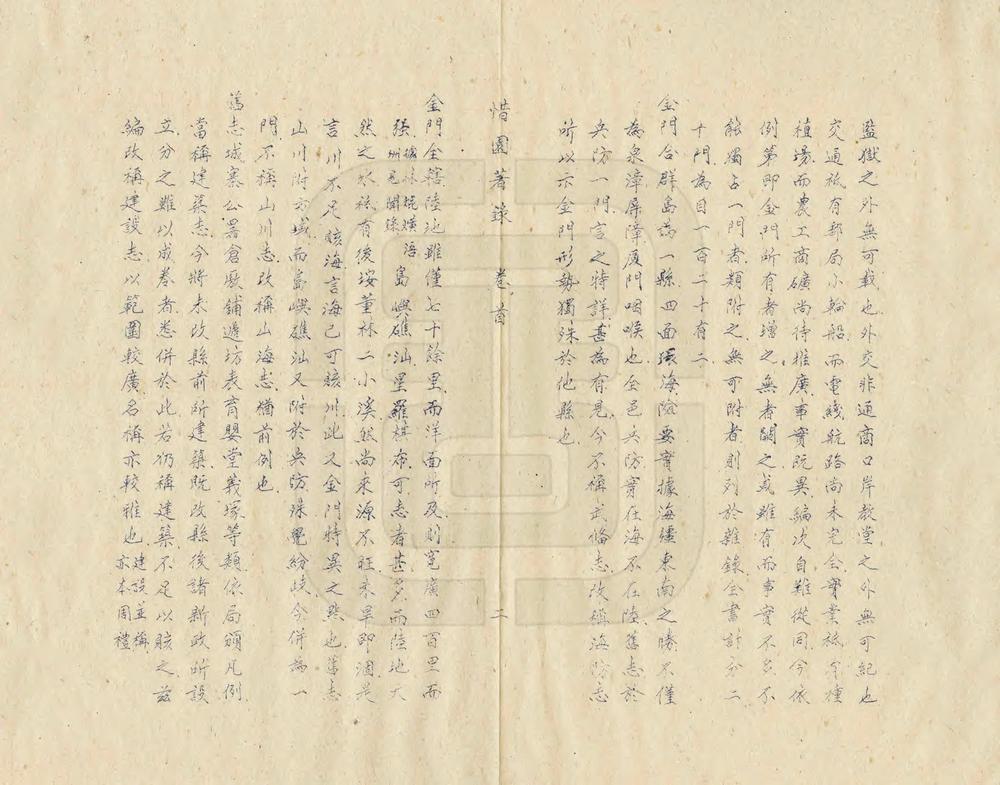 監獄之外無可載也外交非通商口岸教堂之外無可紀也
交通祇有郵局小輪船而電綫航路尚未完全實業祇有種
植場而農工商礦尚待推廣事實既異編次自難從同今依
例第即金門所有者增之無者闕之或雖有而事實不多不
能獨占一門者類附之無可附者則列於雜錄全書計分二
十門為目一百二十有二
金門合群島為一縣四面環海險要實據海疆東南之勝不僅
為泉漳屏障廈門咽喉也全邑兵防實在海不在陸舊志於
兵防一門言之特詳甚為有見今不稱武備志改稱海防志
所以示金門形勢獨殊於他縣也
惜園著錄 卷首 二
金門全轄陸地雖僅七十餘里而洋面所及則寬廣四百里而
强據林焜熿浯洲見聞錄島嶼礁汕星羅棋布可志者甚多而陸地天
然之水祇有後垵董林二小溪然尚來源不旺末旱即涸是
言川不足賅海言海已可賅川此又金門特異之點也舊志
山川附方域而島嶼礁汕又附於兵防殊覺紛歧今併為一
門不稱山川志改稱山海志猶前例也
舊志城寨公署倉廒鋪遞坊表育嬰堂義塚等類依局頒凡例
當稱建築志今將未改縣前所建築既改縣後諸新政所設
立分之難以成卷者悉併於此若仍稱建築不足以賅之茲
編改稱建設志以範圍較廣名稱亦較雅也建設並稱亦本周禮